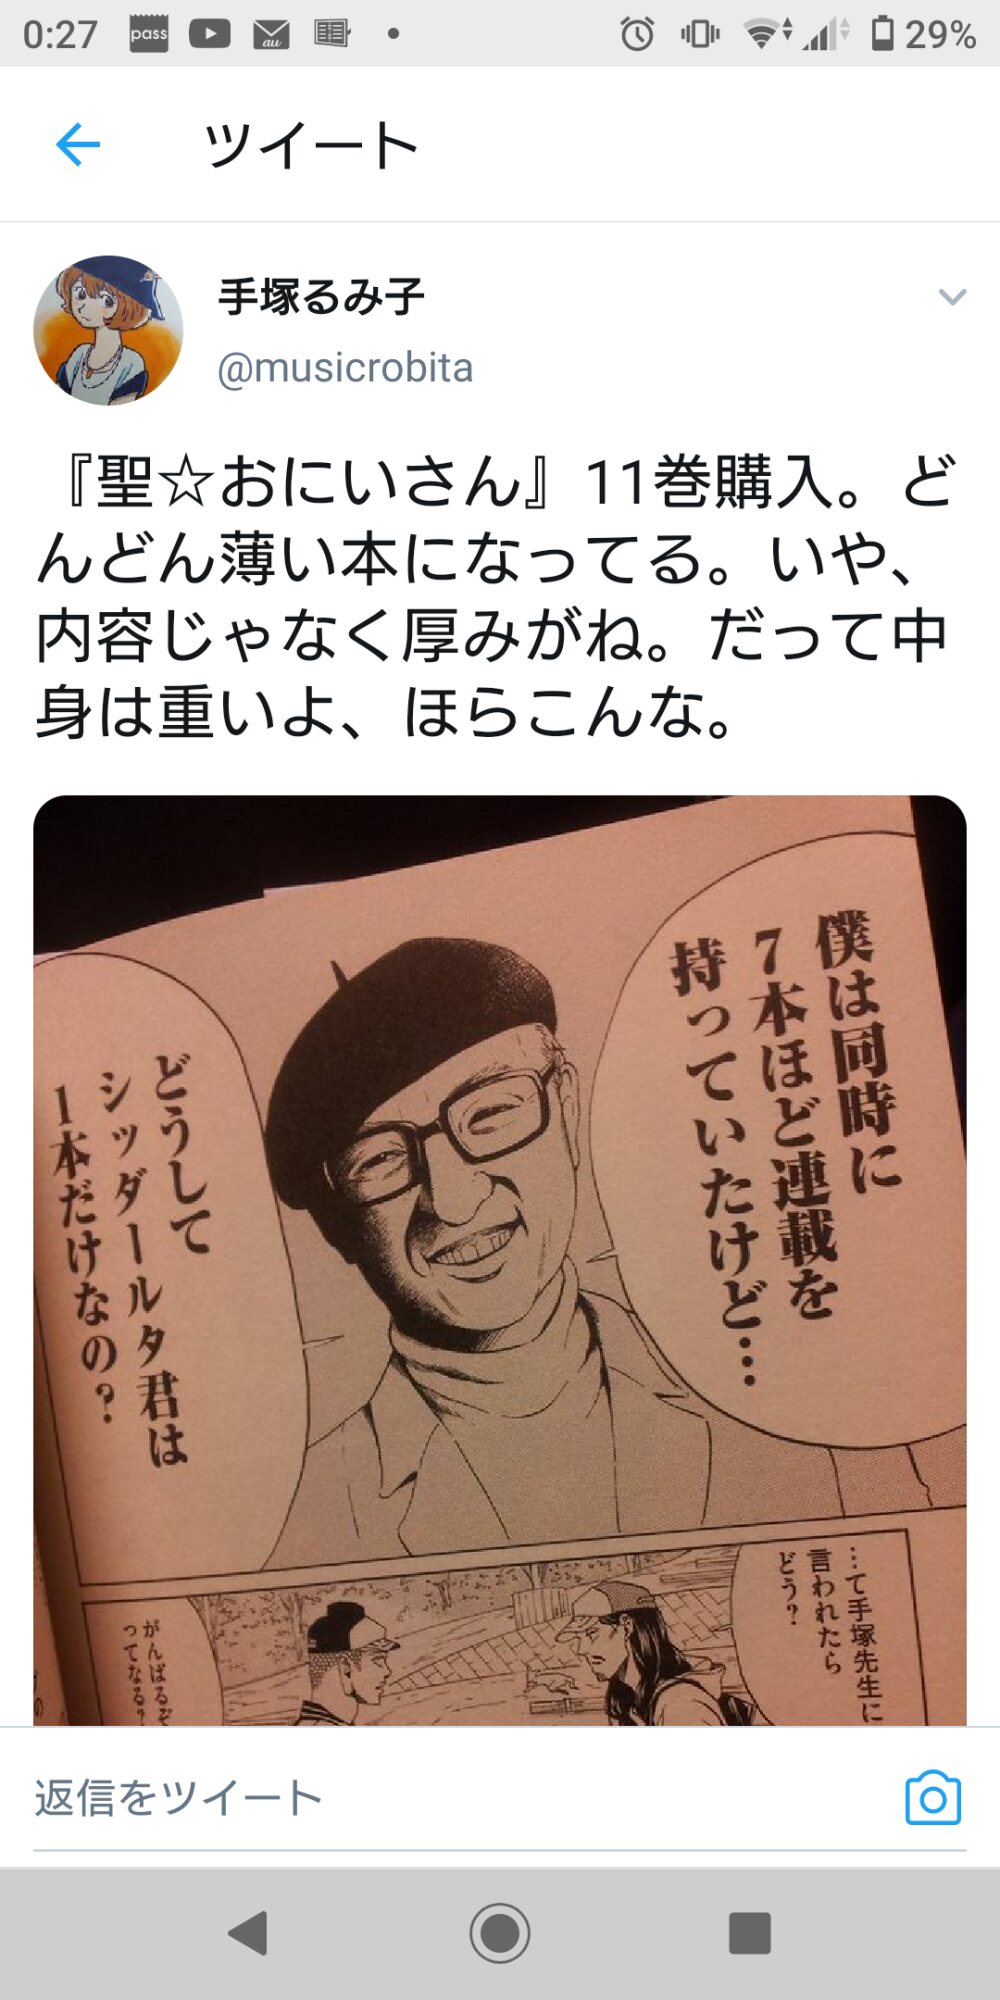 0:27
pass
au
29%
ツイート
手塚るみ子
@musicrobita
『聖☆おにいさん』11巻購入。ど
んどん薄い本になってる。いや、
内容じゃなく厚みがね。だって中
身は重いよ、ほらこんな。
僕は同時に
7本ほど連載を
持っていたけど…
どうして
シッダールタ君は
1本だけなの?
…て手塚先生に
言われたら
どう?
がんばるぞ
ってなる?
返信をツイート